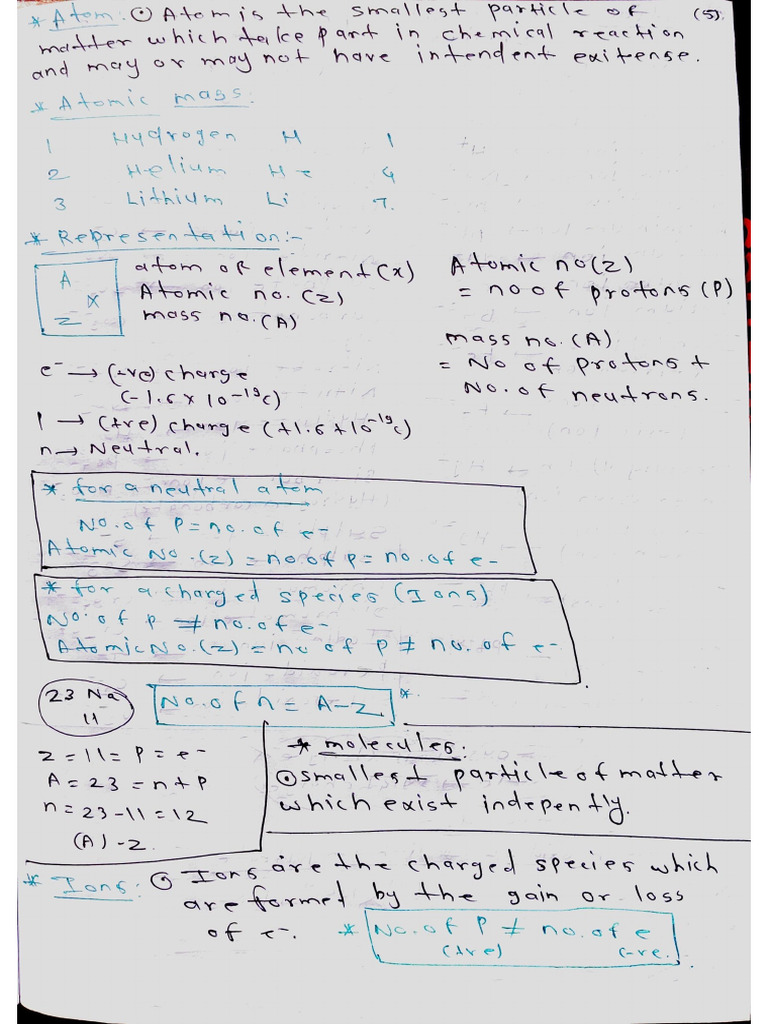 * Atom: ⊙ Atom is the smallest particle of (5)
matter which take part in chemical reaction
and may or may not have intendent exitense.
* Atomic mass:
1 Hydrogen H 1
2 Helium He 4
3 Lithium Li 7.
* Representation:-
A X Z
atom of element (x)
Atomic no. (z)
mass no. (A)
Atomic no(z)
= no of protons (P)
mass no. (A)
= No of protons +
No. of neutrons.
e⁻ → (-ve) charge
(-1.6 x 10⁻¹⁹c)
P → (+ve) charge (+1.6+10⁻¹⁹c)
n → Neutral.
* for a neutral atom
No. of P = no. of e-
Atomic No. (z) = no of P = no. of e-
* for a charged species (Ions)
No. of P ≠ no. of e-
Atomic No. (z) = no of P ≠ no. of e-
23 Na
11
No. of n = A-z *
z = 11 = P = e-
A = 23 = n + P
n = 23 - 11 = 12
(A) - z
* molecules:
⊙ smallest particle of matter
which exist indepently.
* Ions: ⊙ Ions are the charged species which
are formed by the gain or loss
of e-.
* No. of P ≠ no. of e
(+ve) (-ve.)